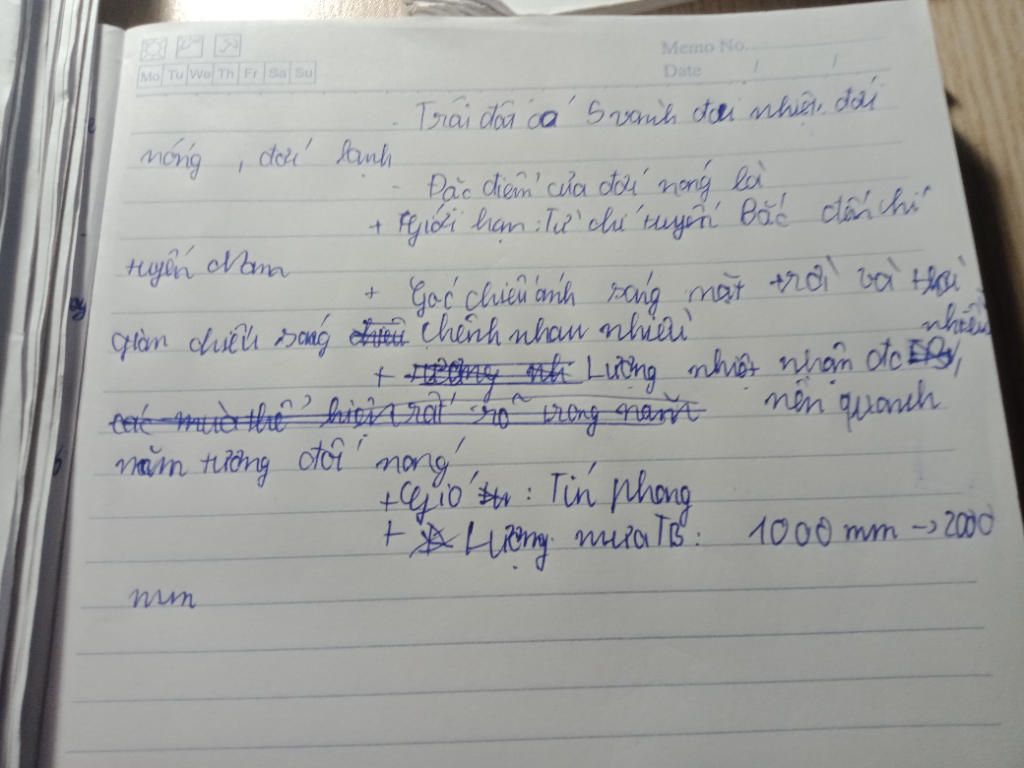 Memo No.
Mo Tu We Th Fr Sa Su
Date / /
- Trái đất có 5 vành đai nhiệt: đới
nóng, đới lạnh
- Đặc điểm của đới nóng là
+ Giới hạn: Từ chí tuyến Bắc đến chí
tuyến Nam
+ Góc chiếu ánh sáng mặt trời và thời
gian chiếu sáng chênh nhau nhiều
nhiều
+ Lượng nhiệt nhận đc
nên quanh
năm tương đối nóng
+ Gió : Tín phong
+ Lượng mưa TB: 1000 mm -> 2000
mm